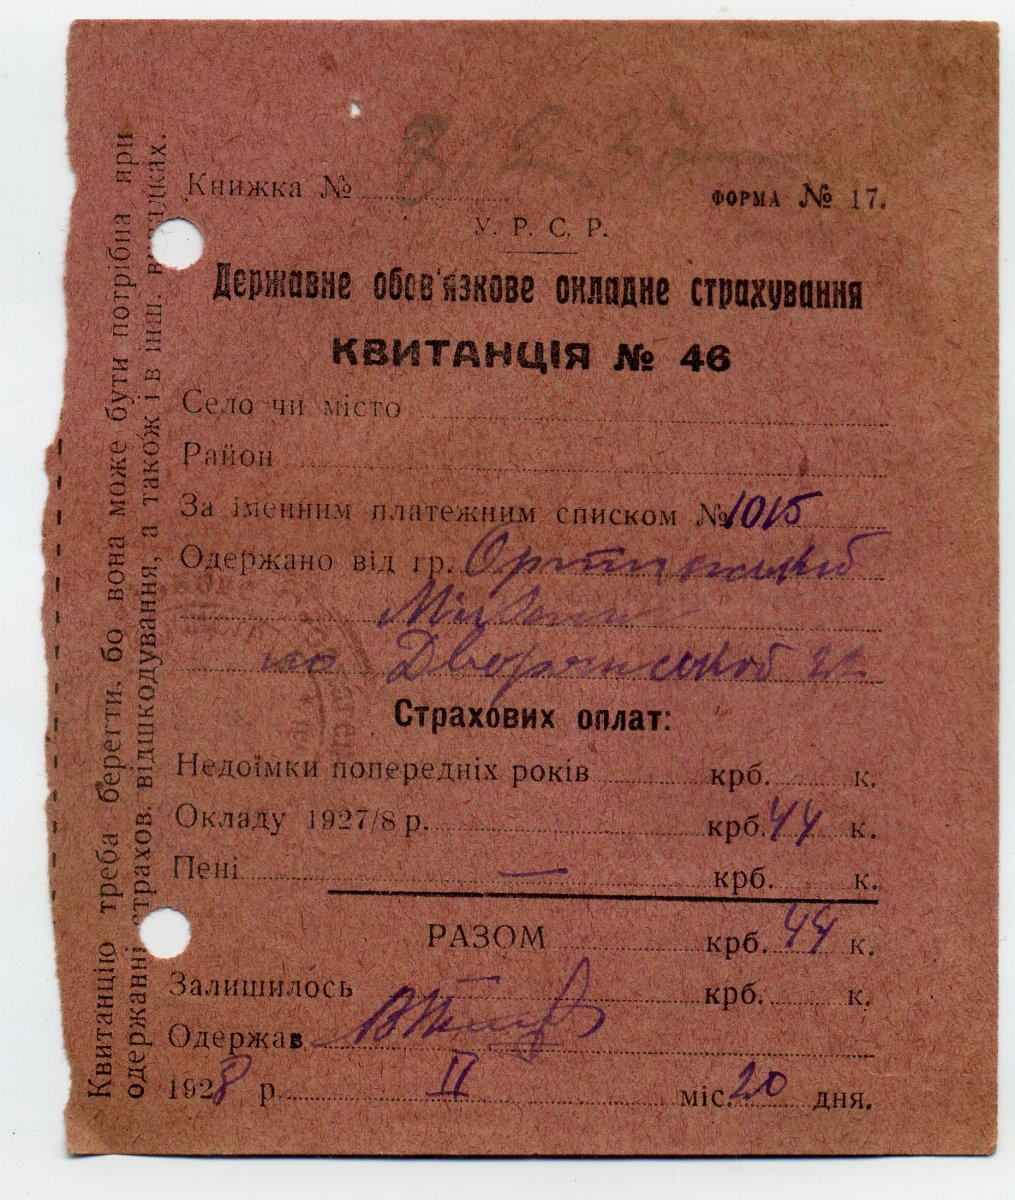 Книжка №
ФОРМА № 17.
У. Р. С. Р.
Державне обов'язкове окладне страхування
КВИТАНЦІЯ № 46
Село чи місто
Район
За іменним платежним списком № 1015
Одержано від гр.
по Дворянской 22
Страхових оплат:
Недоїмки попередніх років крб. к.
Окладу 1927/8 р. крб. 44 к.
Пені — крб. к.
РАЗОМ крб. 44 к.
Залишилось — крб. к.
Одержав
1928 р. II міс. 20 дня.
Квитанцію треба берегти, бо вона може бути потрібна при
одержанні страхов. відшкодування, а також і в інш. випадках.